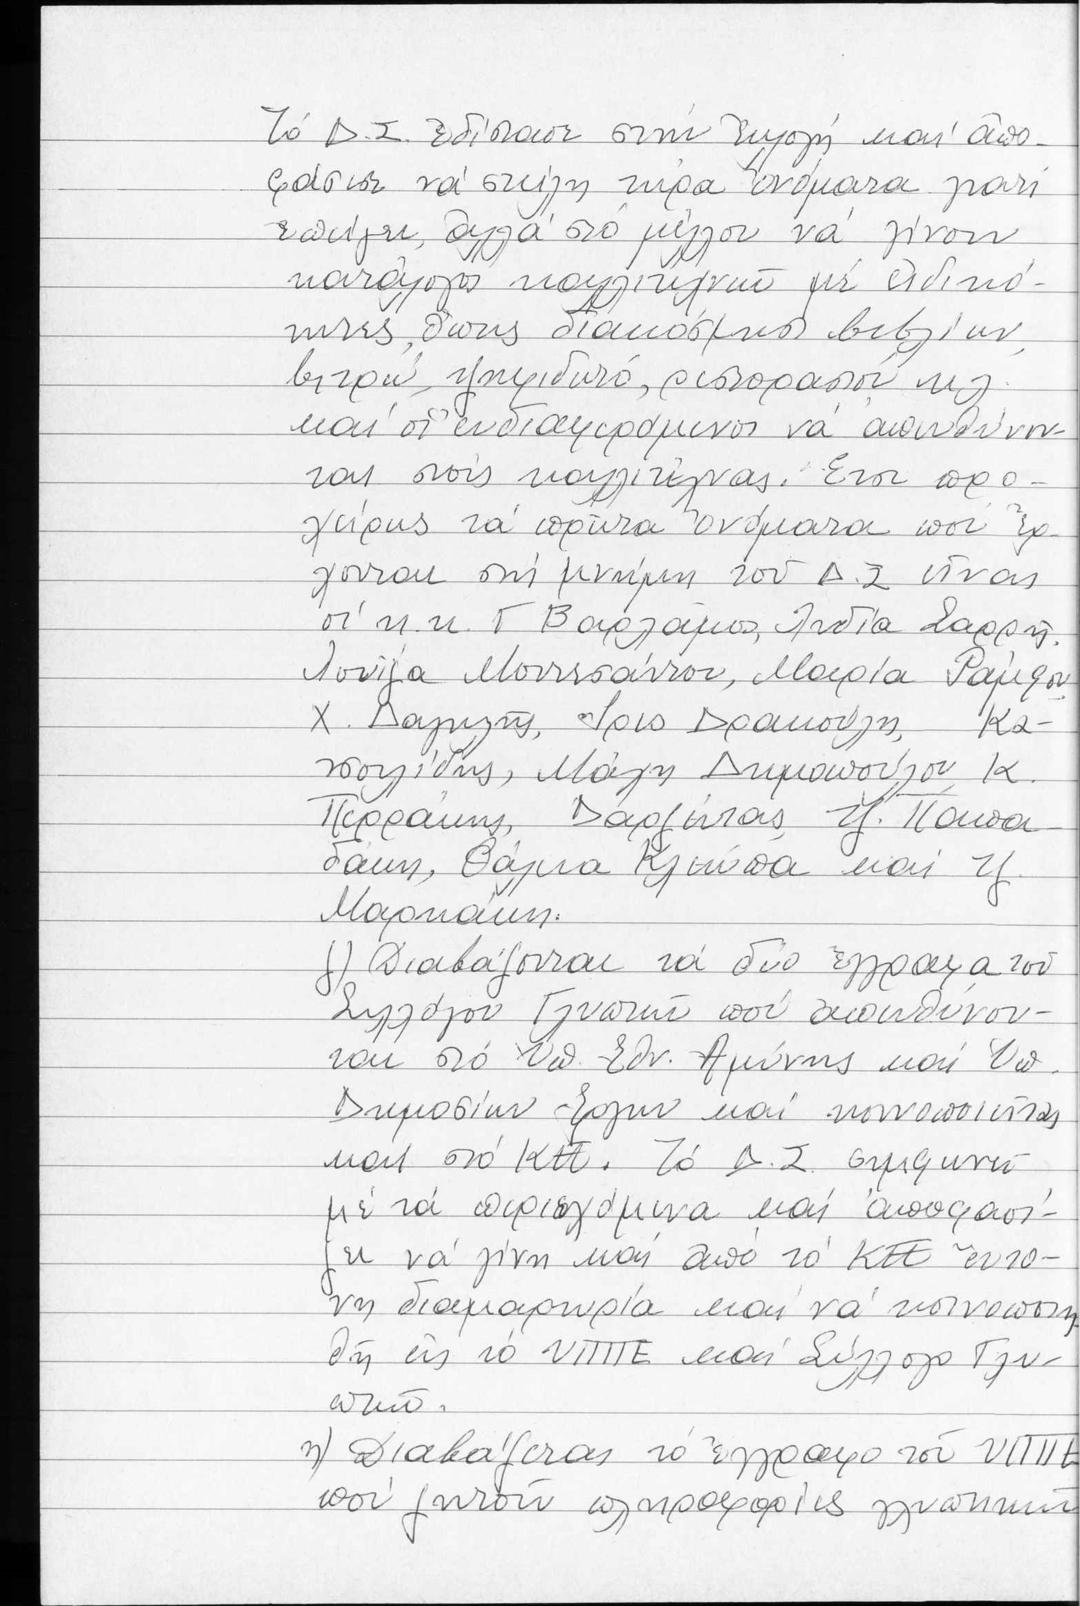 Τό Δ.Σ. ἐδίστασε στήν ἐκλογή καί ἀπο-
φάσισε νά στείλη τώρα ὀνόματα γιατί
ἐπείγει, ἀλλά στό μέλλον νά γίνουν
κατάλογοι καλλιτεχνῶν μέ εἰδικό-
τητες, ὅπως διακόσμηση βιβλίων,
βιτρώ, ψηφιδωτό, ρεστοράσιον κλ.
καί οἱ ἐνδιαφερόμενοι νά ἀπευθύνον-
ται στούς καλλιτέχνας. Ἔτσι προ-
χείρως τά πρῶτα ὀνόματα πού ἔρ-
χονται στή μνήμη τοῦ Δ.Σ εἶναι
οἱ κ.κ. Γ Βαρλάμος, Λυδία Σαρρῆ,
Λουΐζα Μοντεσάντου, Μαρία Ράμφου,
Χ. Δαγκλῆς, Ἄρις Δρακούλη, Κα-
νσολίδης, Μάχη Δημοπούλου, Κ.
Περράκης, Δαρζέντας, Τζ. Παπα-
δάκη, Θάλεια Κλειώπα καί Τζ.
Μαρκάκη.
ζ) Διαβάζονται τά δύο ἔγγραφα τοῦ
Συλλόγου Γλυπτῶν πού ἀπευθύνον-
ται στό Ὑπ. Ἐθν. Ἀμύνης καί Ὑπ.
Δημοσίων Ἔργων καί κοινοποιεῖται
καί στό ΚΕΕ. Τό Δ.Σ. συμφωνεῖ
μέ τά περιεχόμενα καί ἀποφασί-
ζει νά γίνη καί ἀπό τό ΚΕΕ ἔντο-
νη διαμαρτυρία καί νά κοινοποιη-
θῆ εἰς τό ΥΠΠΕ καί Σύλλογο Γλυ-
πτῶν.
η) Διαβάζεται τό ἔγγραφο τοῦ ΥΠΠΕ
πού ζητοῦν πληροφορίες γλυπτικῶν